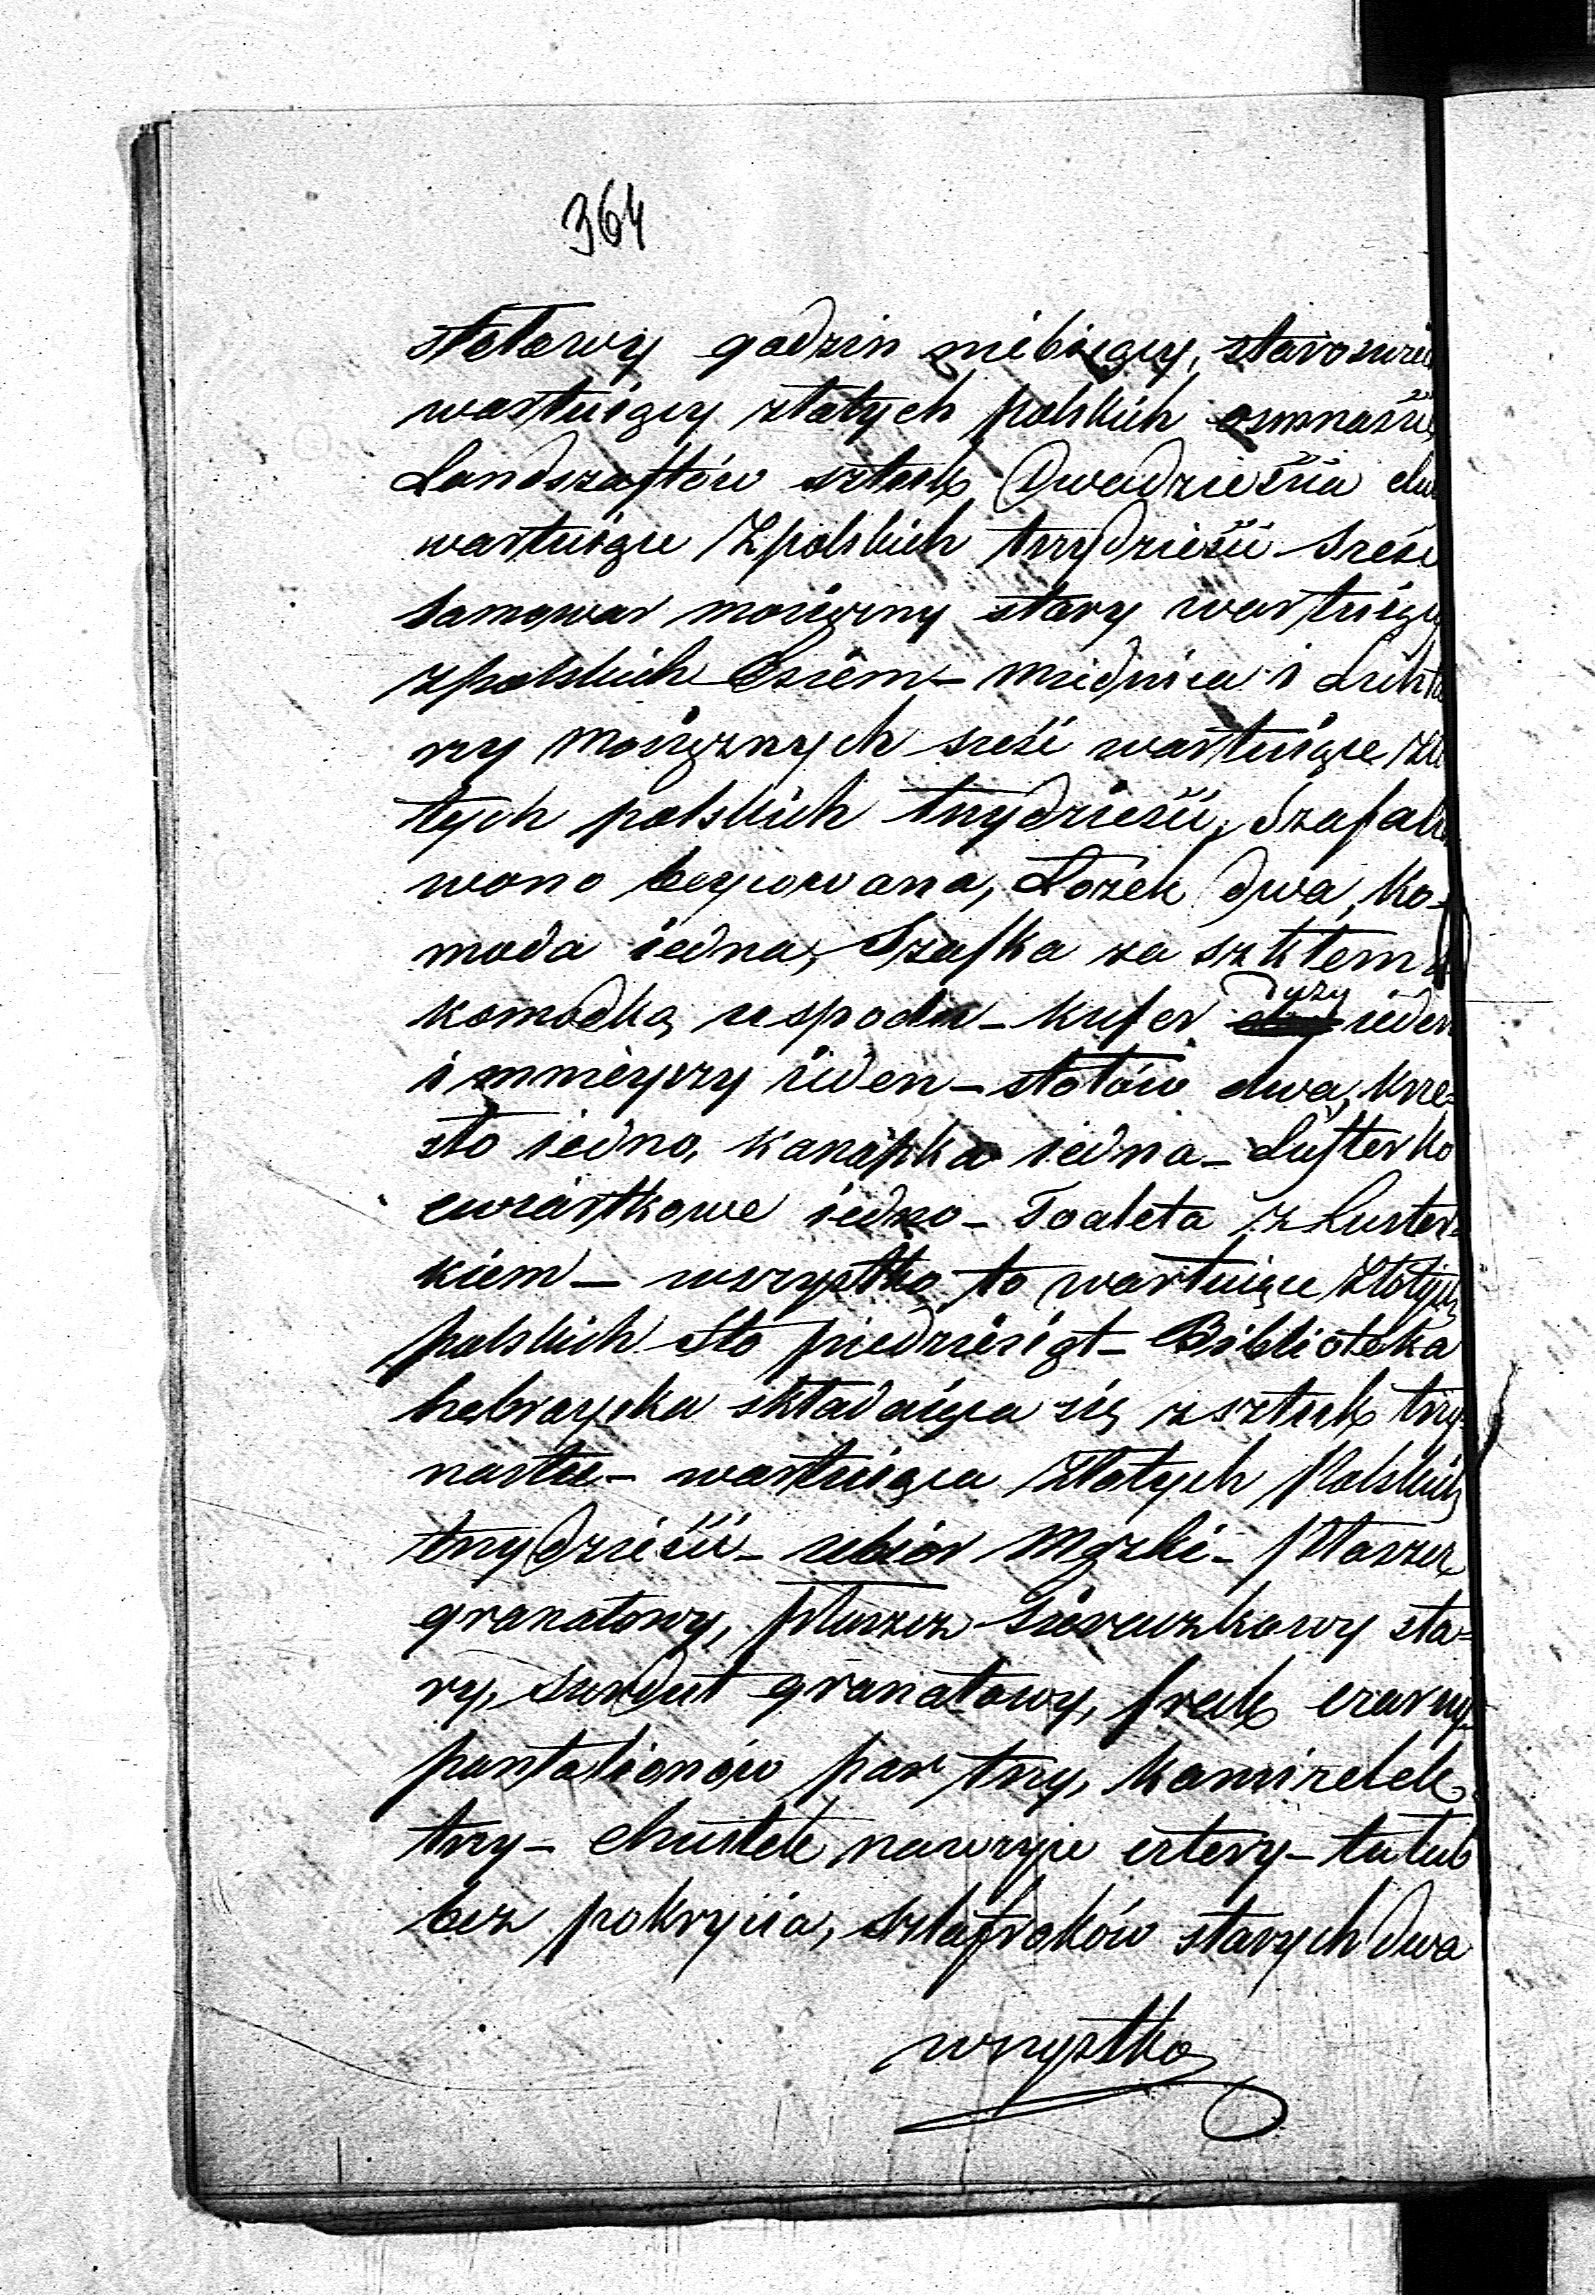 364
stołowy godzin niebiiący, staroswie
wartuiący złotych polskich osmnaście
Landszaftów sztuk Dwadzieścia
wartuiące Zpolskich trzydzieści sześć
samowar mosiężny stary wartuiący
zpolskich Osiem – miednica i Lichta
rzy mosiężnych sześć wartuiące zło
tych polskich trzydzieści, Szafa
wono beycowana, Łóżek dwa, Ko-
moda iedna, Szafka za szkłem z
komodką uspodu – kufer duży ieden
i mnieyszy ieden – stołów dwa, krze-
sło iedno, kanapka iedna – Lusterko
cwiartkowe iedno – Toaleta z Luster-
kiem – wszystko to wartuiące złotych
polskich sto piedziesiąt – Biblioteka
hebrayska składaiąca się z sztuk trzy-
nastu – wartuiąca Złotych Polskich
trzydzieści – ubiór Męzki – Płaszcz
granatowy, płaszcz Sieraczkowy sta-
ry, surdut granatowy, frak czarny
pantalionów par trzy, kamizelek
trzy – chustek naszyie cztery – tułub
bez pokrycia, szlafroków starych dwa
wszystko